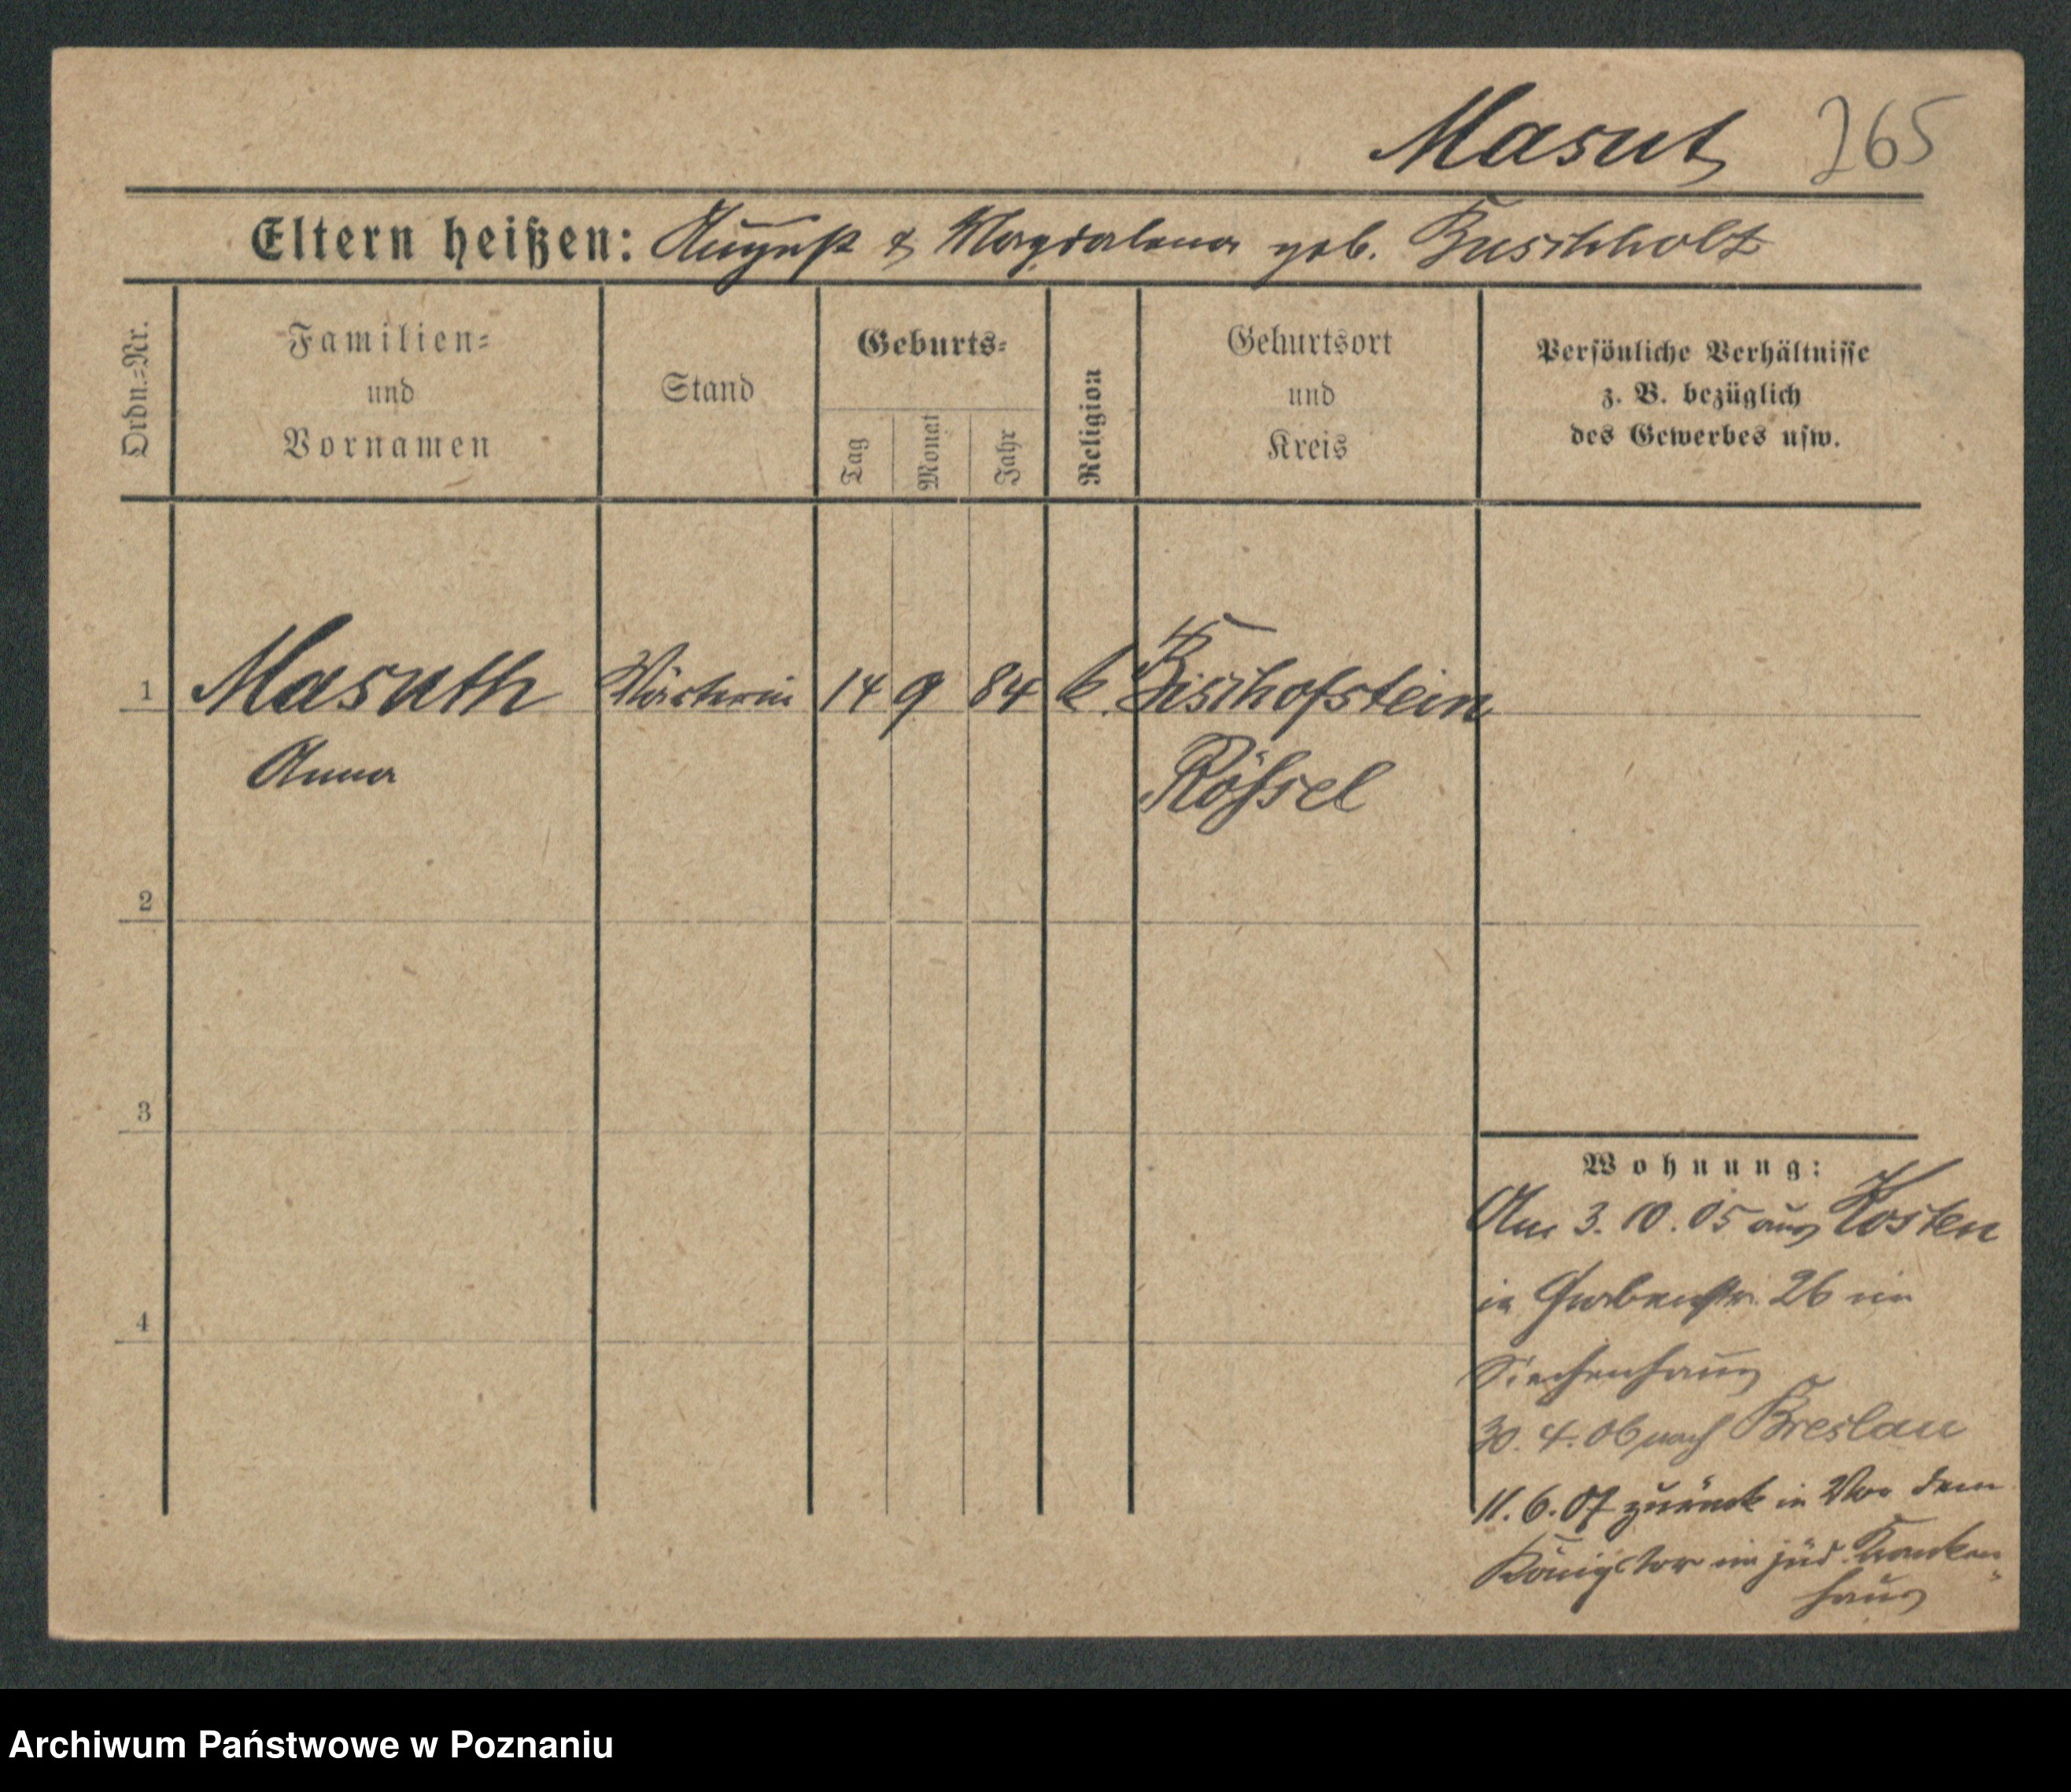 Masut 265
Eltern heißen: August & Magdalena geb. Buschholz
Ordn.=Nr.
Familien=
und
Vornamen
Stand
Geburts=
Tag
Monat
Jahr
Religion
Geburtsort
und
Kreis
Persönliche Verhältnisse
z. B. bezüglich
des Gewerbes usw.
1 Masuth Wärterin 14 9 84 k. Bischofstein
Anna Rößel
2
3
4
Wohnung:
Am 3. 10. 05 aus Kosten
in Grabenstr. 26 im
Siechenhaus
30. 4. 06 nach Breslau
11. 6. 07 zurück in Vor dem
Königstor im jüd. Kranken=
haus
Archiwum Państwowe w Poznaniu